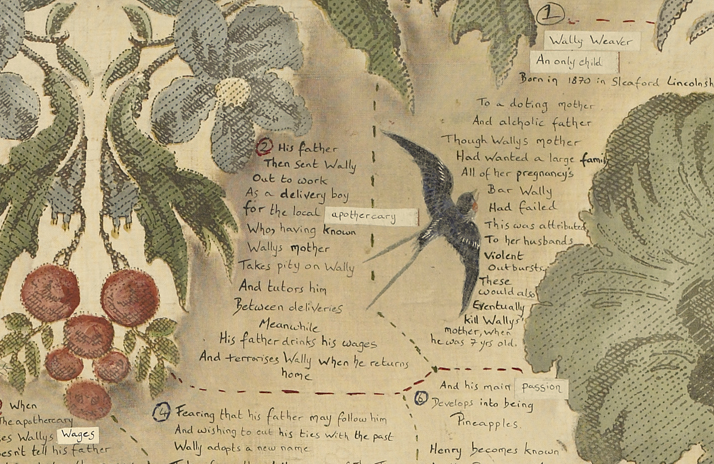 1
Wally Weaver
An only child
Born in 1870 in Sleaford Lincolnsh
To a doting mother
And alcholic father
Though Wally's mother
Had wanted a large family
All of her pregnancy's
Bar Wally
Had failed
This was attributed
To her husbands
Violent
Outbursts,
These
would also
Eventually
kill Wally's
mother, when
he was 7 yrs old.
2 His father
Then sent Wally
Out to work
As a delivery boy
for the local apothecary
Who, having known
Wallys mother
Takes pity on Wally
And tutors him
Between deliveries
Meanwhile
His father drinks his wages
And terrorises Wally when he returns
home.
When
the apothecary
es Wallys Wages
oesn't tell his father
4 Fearing that his father may follow him
And wishing to cut his ties with the past
Wally adopts a new name
6 And his main passion
Develops into being
Pineapples.
Henry becomes known